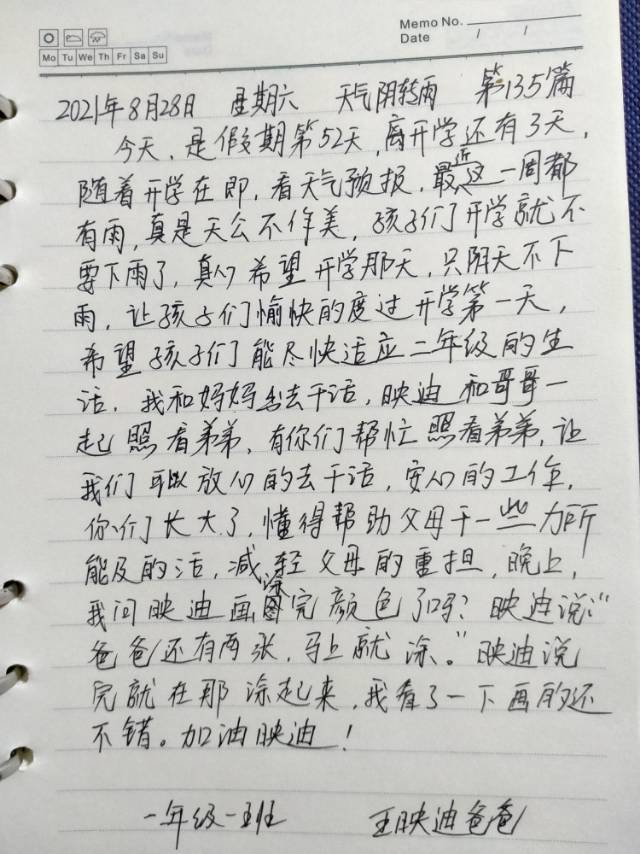 Memo No.
Mo Tu We Th Fr Sa Su
Date / /
2021年8月28日 星期六 天气阴转雨 第135篇
今天，是假期第52天，离开学还有3天，
随着开学在即，看天气预报，最近这一周都
有雨，真是天公不作美，孩子们开学就不
要下雨了，真心希望开学那天，只阴天不下
雨，让孩子们愉快的度过开学第一天，
希望孩子们能尽快适应二年级的生
活，我和妈妈去干活，映迪和哥哥一
起照看弟弟，有你们帮忙照看弟弟，让
我们可以放心的去干活，安心的工作，
你们长大了，懂得帮助父母干一些力所
能及的活，减轻父母的重担，晚上，
我问映迪画涂完颜色了吗？映迪说：“
爸爸还有两张，马上就涂。”映迪说
完就在那涂起来，我看了一下画的还
不错。加油映迪！
一年级一班 王映迪爸爸